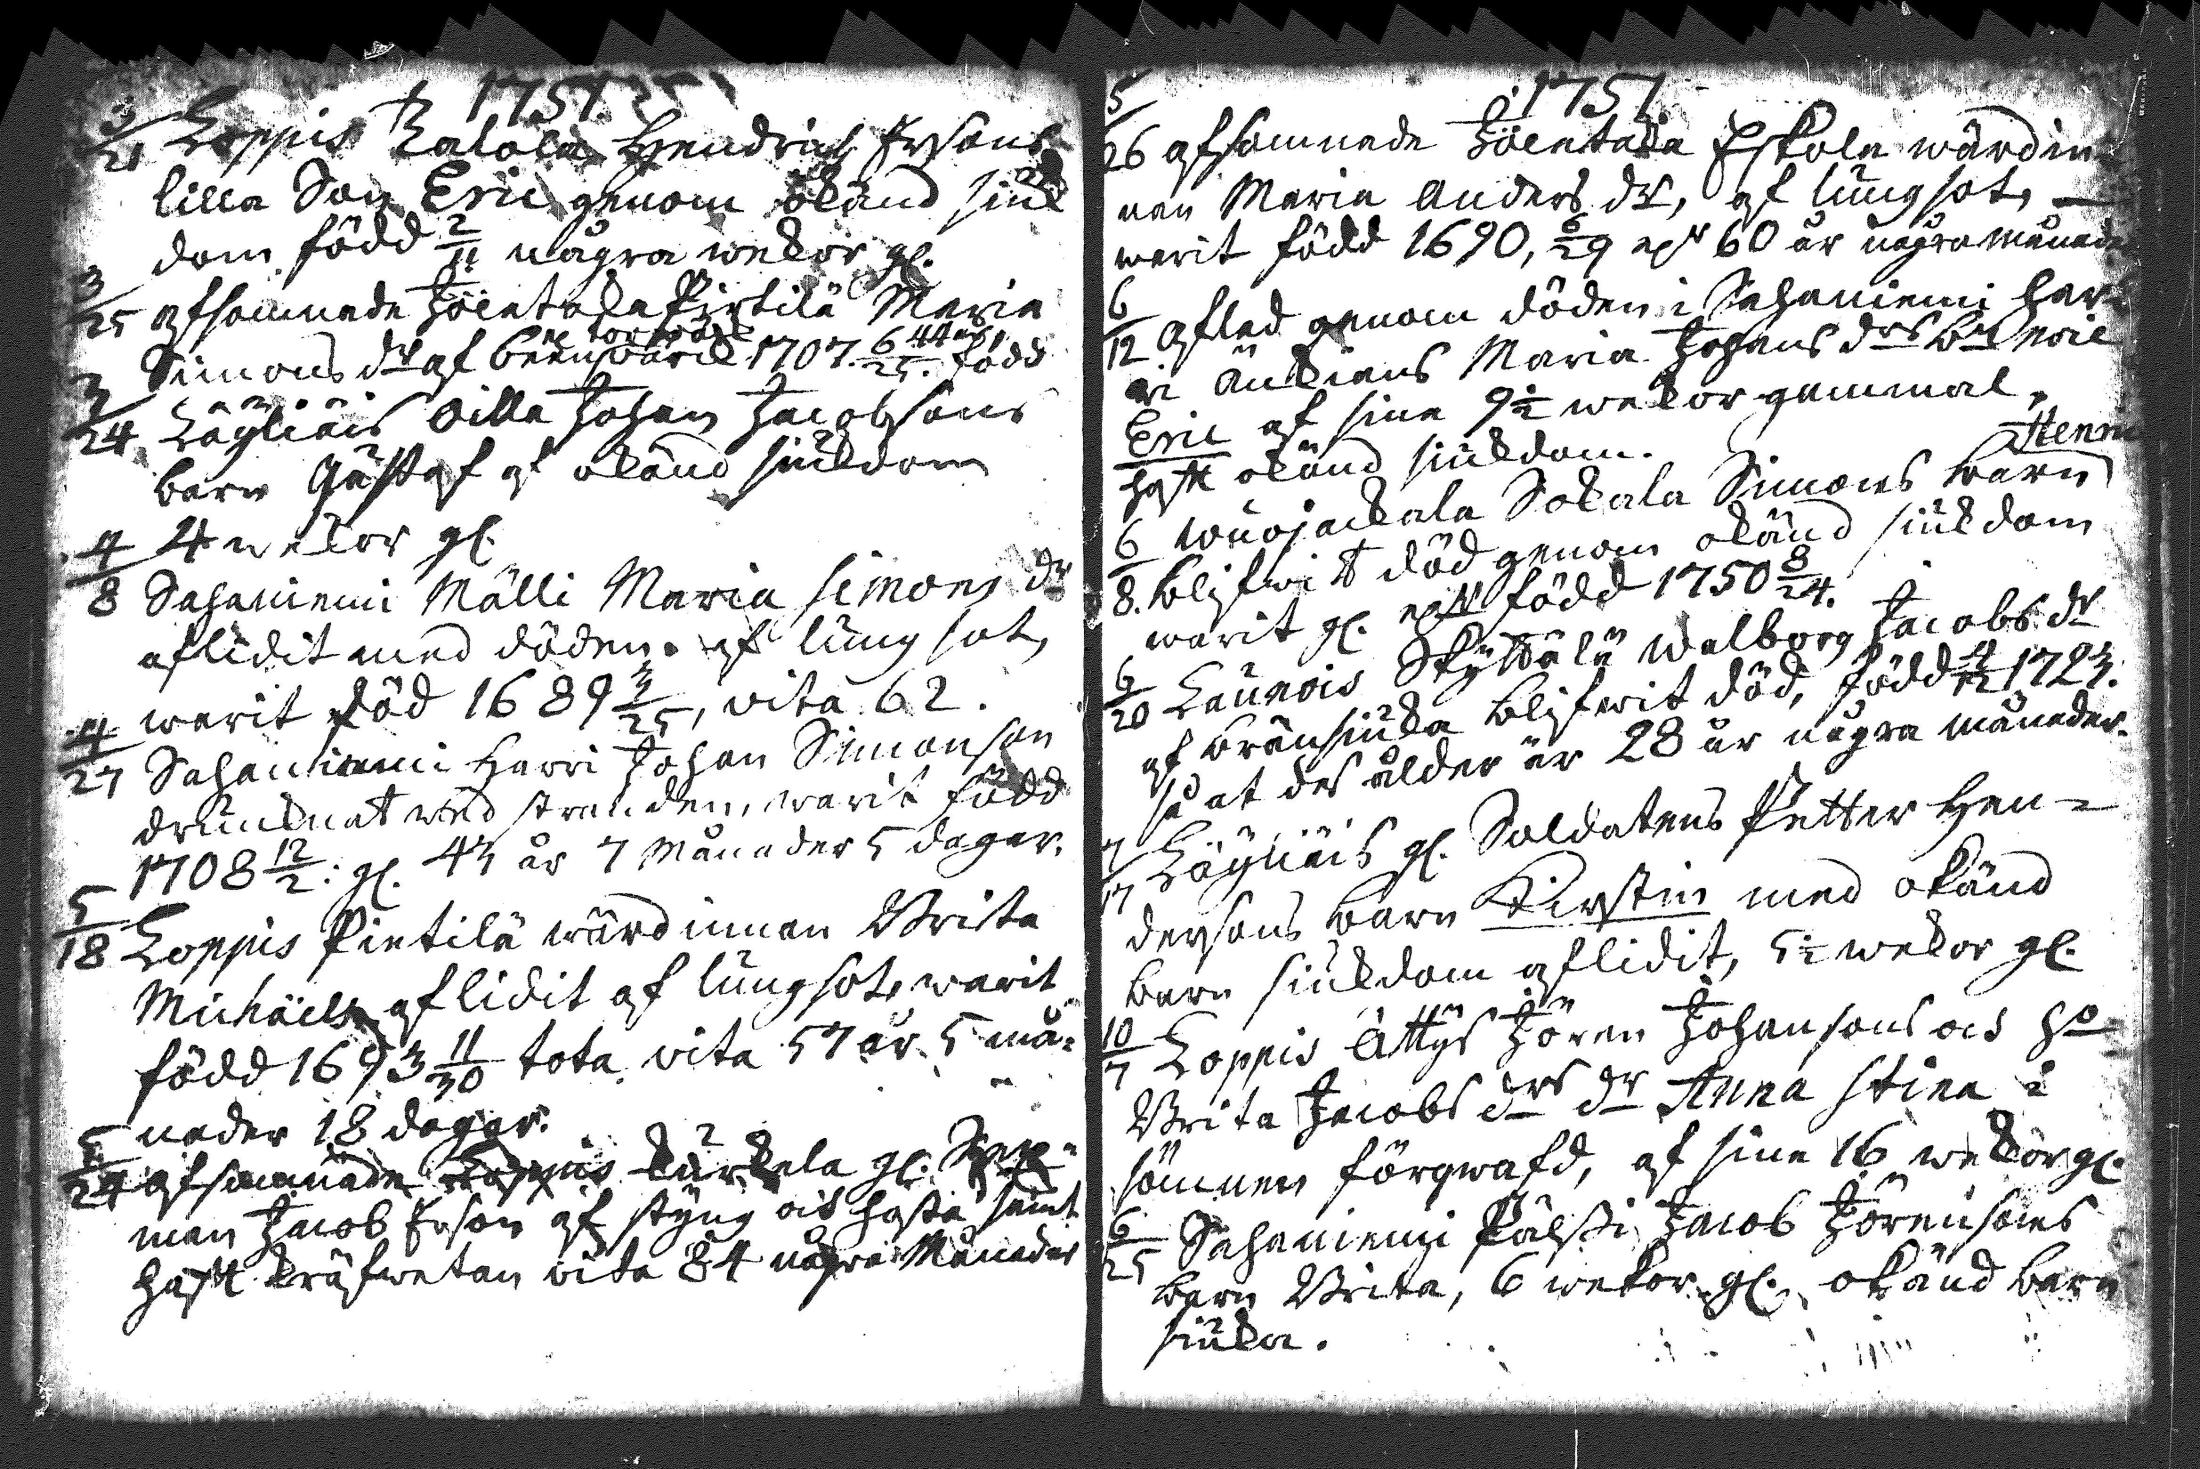 1751.
3/21 Loppis Kalola Hendrich Ersons
lilla Son Eric genom okänd siuk
dom född 2/11 några wekor gl.
3/25 afsomnade Jöentaka Pirtilä Maria
Simons dr af 1707. 6/25. född
44 år
3/24 Läyliäis Oilla Johan Jacobsons
barn Gustaf af okänd siukdom
4 wekor gl.
4/8 Sajaniemi Mälli Maria simons dr
aflidit med döden. af lungsot,
warit född 1689 3/25, vita 62.
4/27 Sajaniemi Harri Johan Simonson
drunknat wid stranden, warit född
1708 12/2: gl. 43 år 7 Månader 5 dagar.
5/18 Loppis Pietilä wärdinnan Brita
Michaels aflidit af lungsot, warit
född 1693 11/30 tota vita 57 år 5 må=
nader 18 dagar.
5/24 afsomnade Loppis Kurkela gl.
man Jacob Erson af styng och hosta samt
haft kräfwetan vita 84 några Månader
1751
5/26 afsomnade Jöentaka Eskola wärdin
nan Maria Anders dr, af lungsot,
warit född 1690, 6/29 60 år några månader
6/12 Afled genom döden i Sajaniemi Har
ri Ankians Maria Johans drs
Eric af sine 9½ wekor gammal,
haft okänd siukdom.
Henric
6/8. Wuojackala Sokala Simons barn
blifwit död genom okänd siukdom
warit gl. född 1750 8/24.
6/20 Launois Skyttälä Walborg Jacobs dr
af bränsiuka blifwit död, född 4/12 1723.
så at des ålder är 28 år några månader.
7/17 Läyliäis gl. Soldatens Petter Hen=
dersons barn Kirstin med okänd
barn siukdom aflidit, 5½ wekor gl.
10/7 Loppis Ättys Jören Johansons och ho
Brita Jacobs drs dr Anna stina i
sömnen förqwafd, af sine 16 wekor gl.
6/25 Sajaniemi Pälsi Jacob Jörensons
barn Brita, 6 wekor gl. okänd barn
siuka.